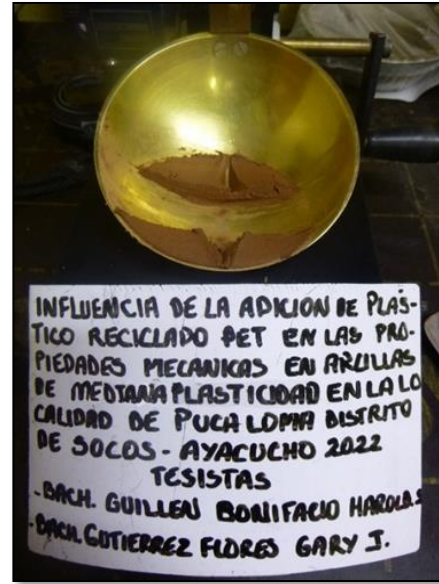 INFLUENCIA DE LA ADICION DE PLÁS-
TICO RECICLADO PET EN LAS PRO-
PIEDADES MECANICAS EN ARCILLAS
DE MEDIANA PLASTICIDAD EN LA LO
CALIDAD DE PUCA LOMA DISTRITO
DE SOCOS - AYACUCHO 2022
TESISTAS
-BACH. GUILLEN BONIFACIO HAROLD.S
-BACH. GUTIERREZ FLORES GARY J.